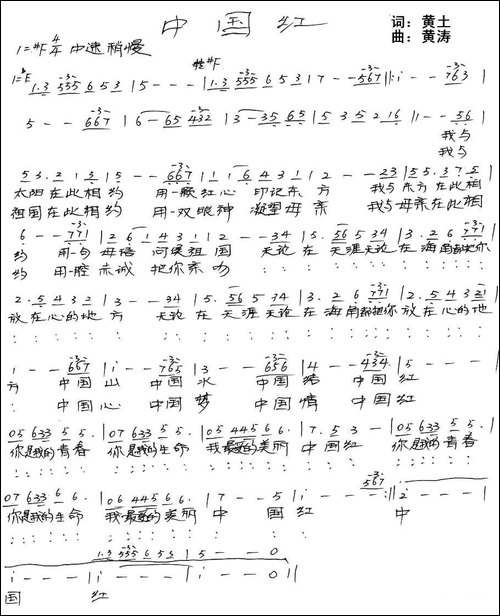 中国红
词：黄土
1=#F 4/4 中速稍慢
曲：黄涛
转#F
1=E 1·3 555 6 5 3 | 5 - - - | 1·3 555 6 5 3 | 7 - - 567 | i - - 763 |
5 - - 667 | 6 - 65 432 | 3 - 35 65 | 5 3 5 2 16 | 1 - - 56 |
我与
我与
53·2 1 3 | 5 - - 667 | 1 1 6 4 3 1 | 2 - - 23 | 5 5·3 7 5 |
太阳在此相约 用一颗红心 印记东方 我与东方在此相
祖国在此相约 用一双眼神 凝望母亲 我与母亲在此相
6 - - 771 | 2 6 1 4 3 1 | 2 - - 34 | 5· 56 5 34 | 3· 2 6 771 |
约 用一句母语 祖国 无论在天涯无论在海南都把你
约 用一腔赤诚 把你
2· 5 4 3 2 | 3 - - 34 | 5· 56 5 34 | 3· 2 6 771 | 2· 5 4 3 21 |
放在心的地方 无论在天涯无论在海南都把你放在心的地
1 - - 667 | i - - 765 | 3 - - 656 | 4 - - 434 | 5 - - - |
方 中国山 中国水 中国结 中国红
中国心 中国梦 中国情 中国红
05 633 5 5· | 07 633 5 5· | 05 445 6 6· | 7· 5 3 - | 05 633 5 5· |
你是我的青春 你是我的生命 我最爱的美丽 中国红 你是我的青春
07 633 6 6· | 06 445 6 6· | 7 - - 5 | i - - - | i - - 567 | 2 - - - |
你是我的生命 我最爱的美丽 中国红 中
1·3 555 6 5 3 | 5 - - 0
i - - - | i - - - | i - - 0 ||
国 红